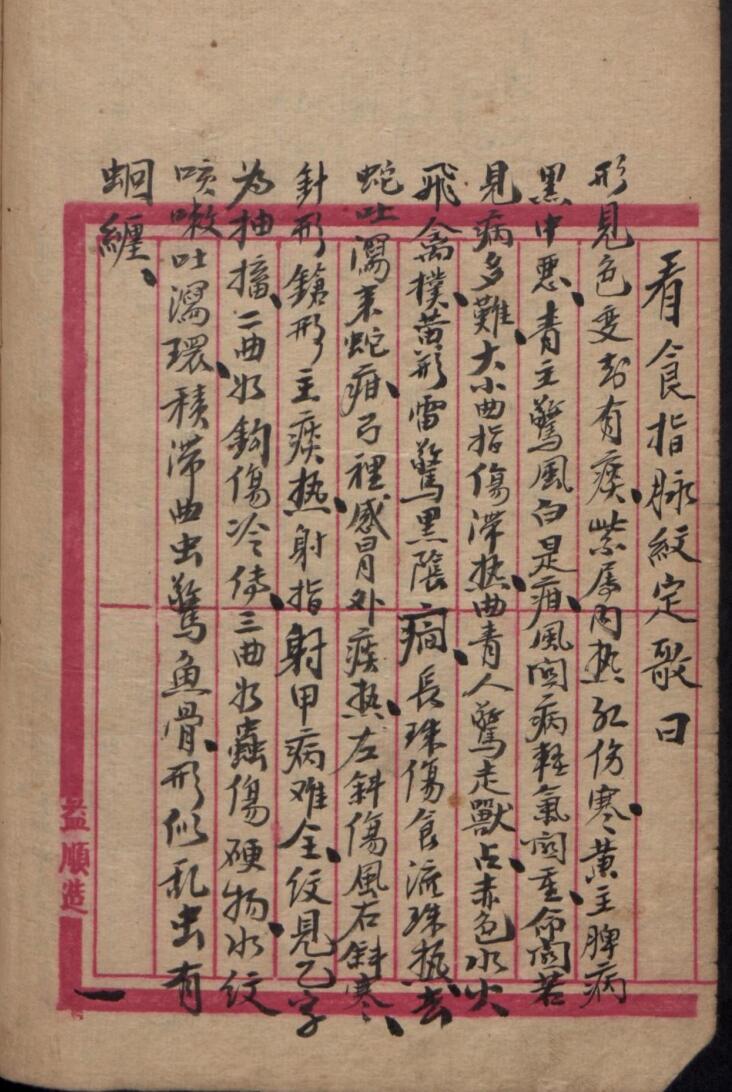 看食指脉紋定歌曰
形見色变却有痰、紫屬内热紅伤寒、黄主脾病
黑中悪、青主驚風白是疳、風関病輕氣関重、命関若
見病多難、大小曲指傷滞热、曲青人驚走獸占、赤色水火
飛禽撲、黄形雷驚黒陰癎、長珠傷食流珠热、去
蛇吐瀉来蛇疳、弓裡感冒外痰热、左斜傷風右斜寒、
針形鎗形主痰热、射指射甲病难全、纹見乙字
为抽搐、二曲如鈎傷冷、三曲如蟲傷硬物、水纹
咳嗽吐瀉環、積滞曲虫驚魚骨、形似乱虫有
蛔纏、
益順造